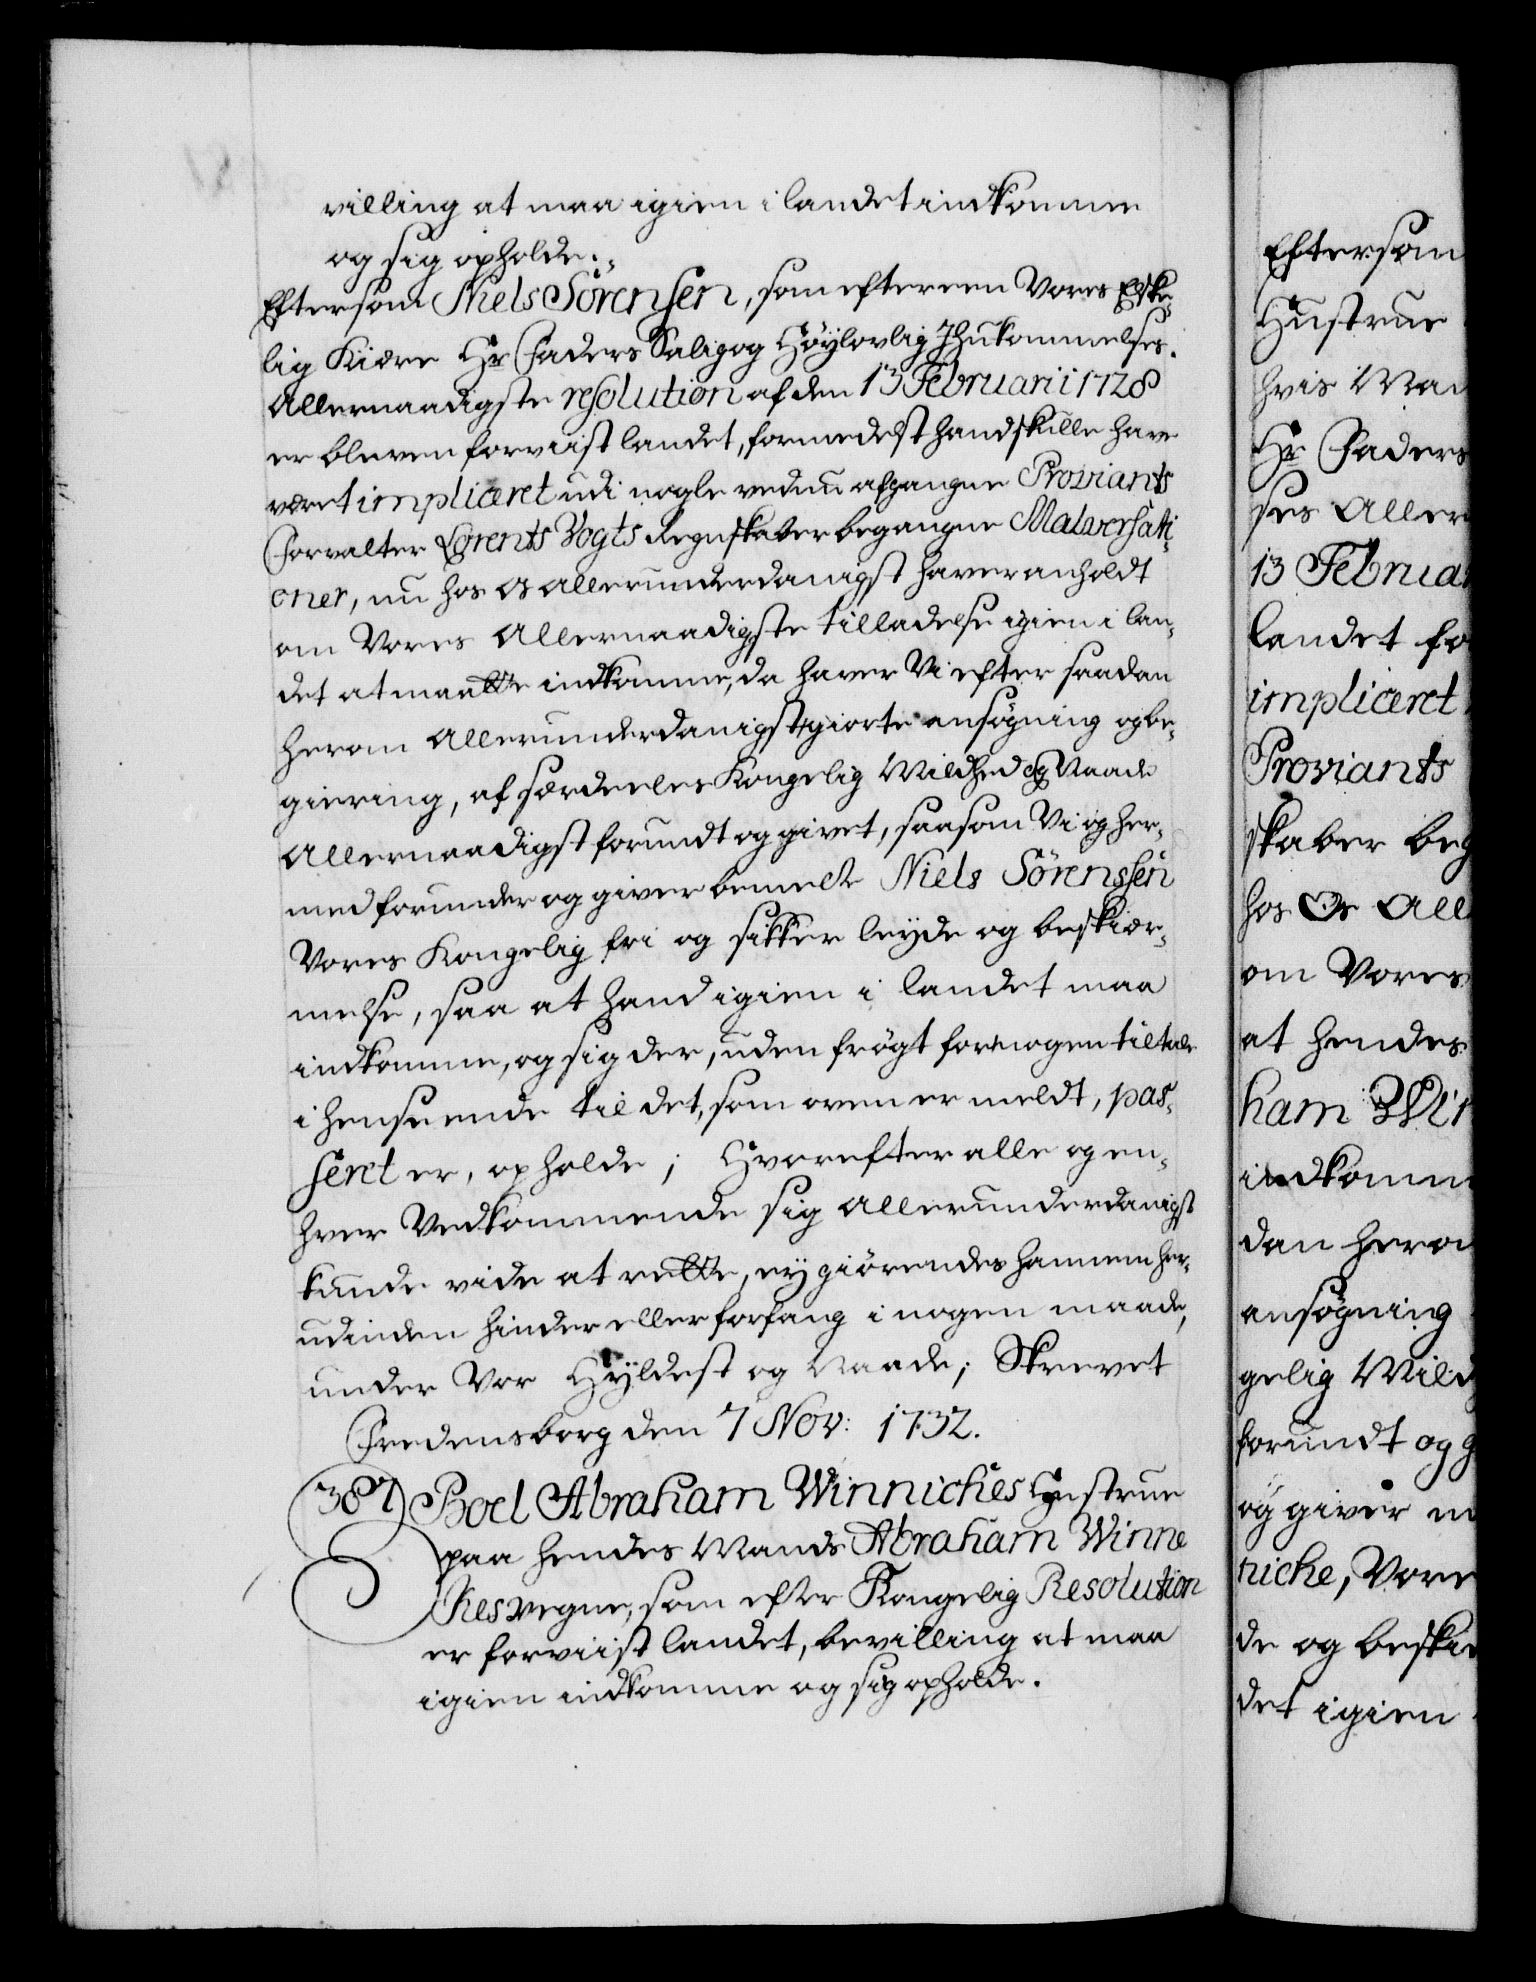 villing at maa igien i landet indkomme
og sig opholde.,
Eftersom Niels Sörensen, som efter en Vores Elske-
lig Kiære Hr Faders Salig og Höÿlovlig Ihukommelses
Allernaadigste resolution af den 13 Februarii 1728
er bleven forviist landet, formedelst hand skulle have
været impliceret udi nogle ved nu afgangne Proviants
Forvalter Lorents Vogts Regnskaber begangne Malversati-
oner, nu hos Os allerunderdanigst haver anholdt
om Vores Allernaadigste tilladelse igien i lan-
det at maatte indkomme, da haver Vi efter saadan
herom allerunderdanigst giorte ansögning og be-
giering, af særdeeles Kongelig Mildhed og Naade
Allernaadigst forundt og givet, saasom Vi og her-
med forunder og giver bemelte Niels Sörenssen
Vores Kongelig fri og sikker leÿde og beskier-
melse, saa at hand igien i landet maa
indkomme, og sig der, uden frögt for nogen tiltale
i henseende til det, som oven er meldt, pas-
seret er, opholde; Hvorefter alle og en-
hver Vedkommende sig allerunderdanigst
kunde vide at rette, eÿ giörendes hannem her-
udinden hinder eller forfang i nogen maade,
under Vor Hÿldest og Naade; Skrevet
Fredensborg den 7 Nov: 1732.
387 Boel Abraham Winniches Hustrue
paa hendes Mands Abraham Winne
ches vegne, som efter Kongelig Resolution
er forviist landet, bevilling at maa
igien indkomme og sig opholde.
Eftersom
Hustrue
hvis Man
Hr Faders
ses Aller
13 Februar
landet fo
impliceret
Proviants
skaber beg
hos Os All
om Vores
at hendes
ham Wi
indkomm
dan hero
ansögning
gelig Mild
forundt og g
og giver
niche, Vore
de og beskie
det igien